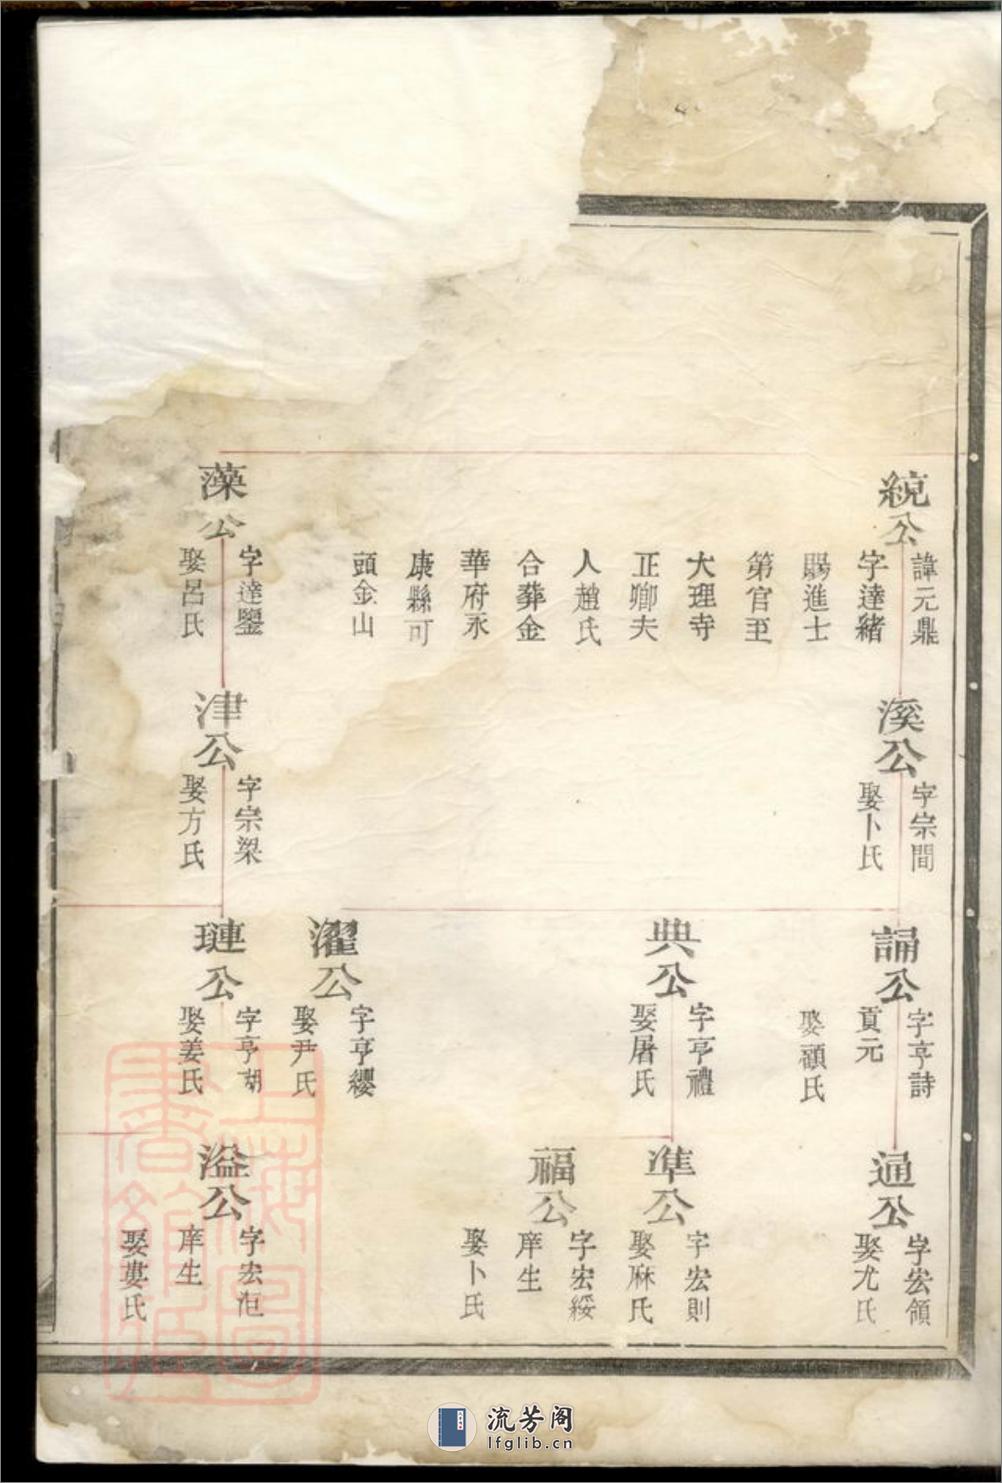 綂公
諱元鼎
字達緒
賜進士
第官至
大理寺
正卿夫
人趙氏
合葬金
華府永
康縣可
頭金山
藻公
字達鑒
娶呂氏
溪公
字宗間
娶卜氏
津公
字宗梁
娶方氏
誦公
字亨詩
貢元
娶顧氏
典公
字亨禮
娶屠氏
濯公
字亨纓
娶尹氏
璉公
字亨瑚
娶姜氏
通公
字宏領
娶尤氏
準公
字宏則
娶麻氏
福公
字宏綏
庠生
娶卜氏
溢公
字宏洰
庠生
娶婁氏
上海圖書館藏
流芳阁
lfglib.cn